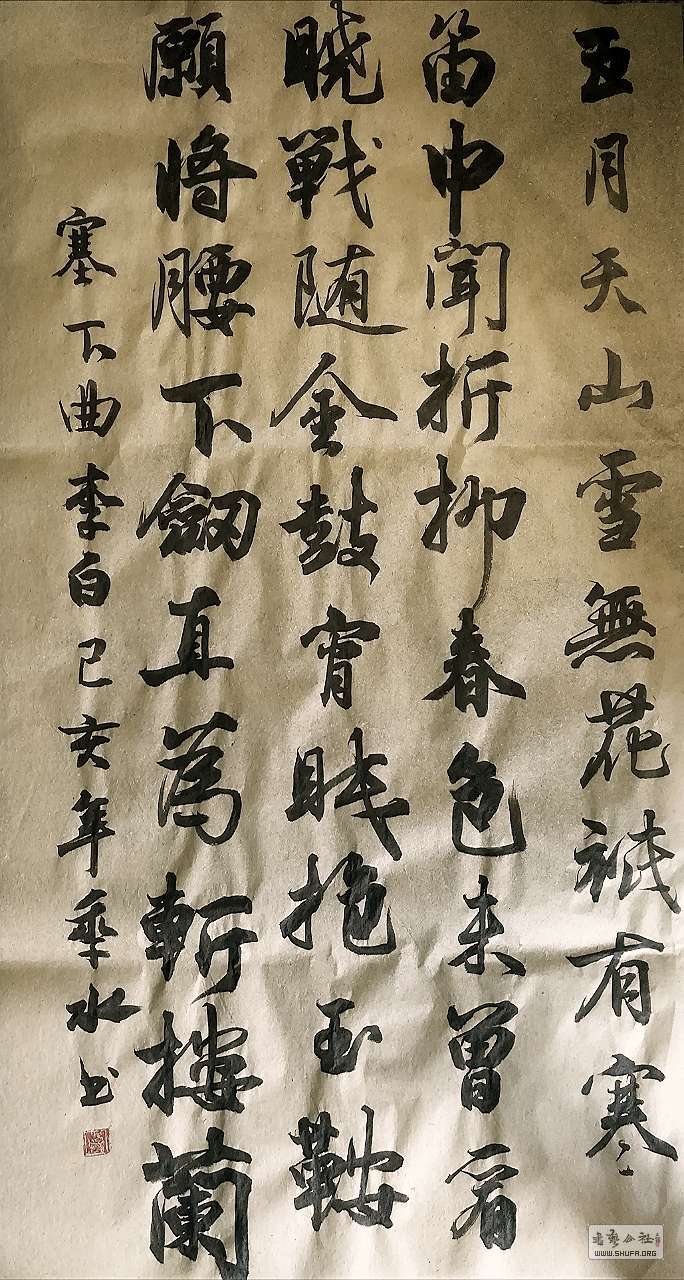 五月天山雪無花祇有寒
笛中聞折柳春色未曾看
曉戰随金鼓宵眠抱玉鞍
願将腰下劒直為斬樓蘭
塞下曲李白己亥年水书
書藝公社
WWW.SHUFA.ORG